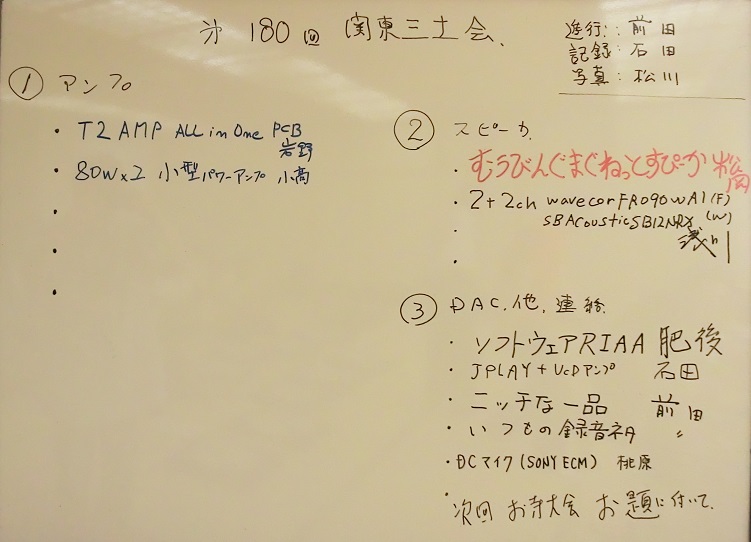 第180回 関東三土会.
進行: 前田
記録: 石田
写真: 松川
① アンプ
・T2 AMP ALL in One PCB
岩野
・80W×2 小型パワーアンプ 小高
・
・
・
② スピーカ
・むうびんぐまぐねっとすぴーか 松岡
・2+2ch wavecor FR090WA1(F)
SBAcousticSB12NRX (W)
浅川
・
・
③ DAC.他.連絡
・ソフトウェアRIAA 肥後
・JPLAY+UcDアンプ 石田
・ニッチな一品 前田
・いつもの録音ネタ 〃
・DCマイク(SONY ECM) 桃原
・次回 お寺大会 お題に付いて.